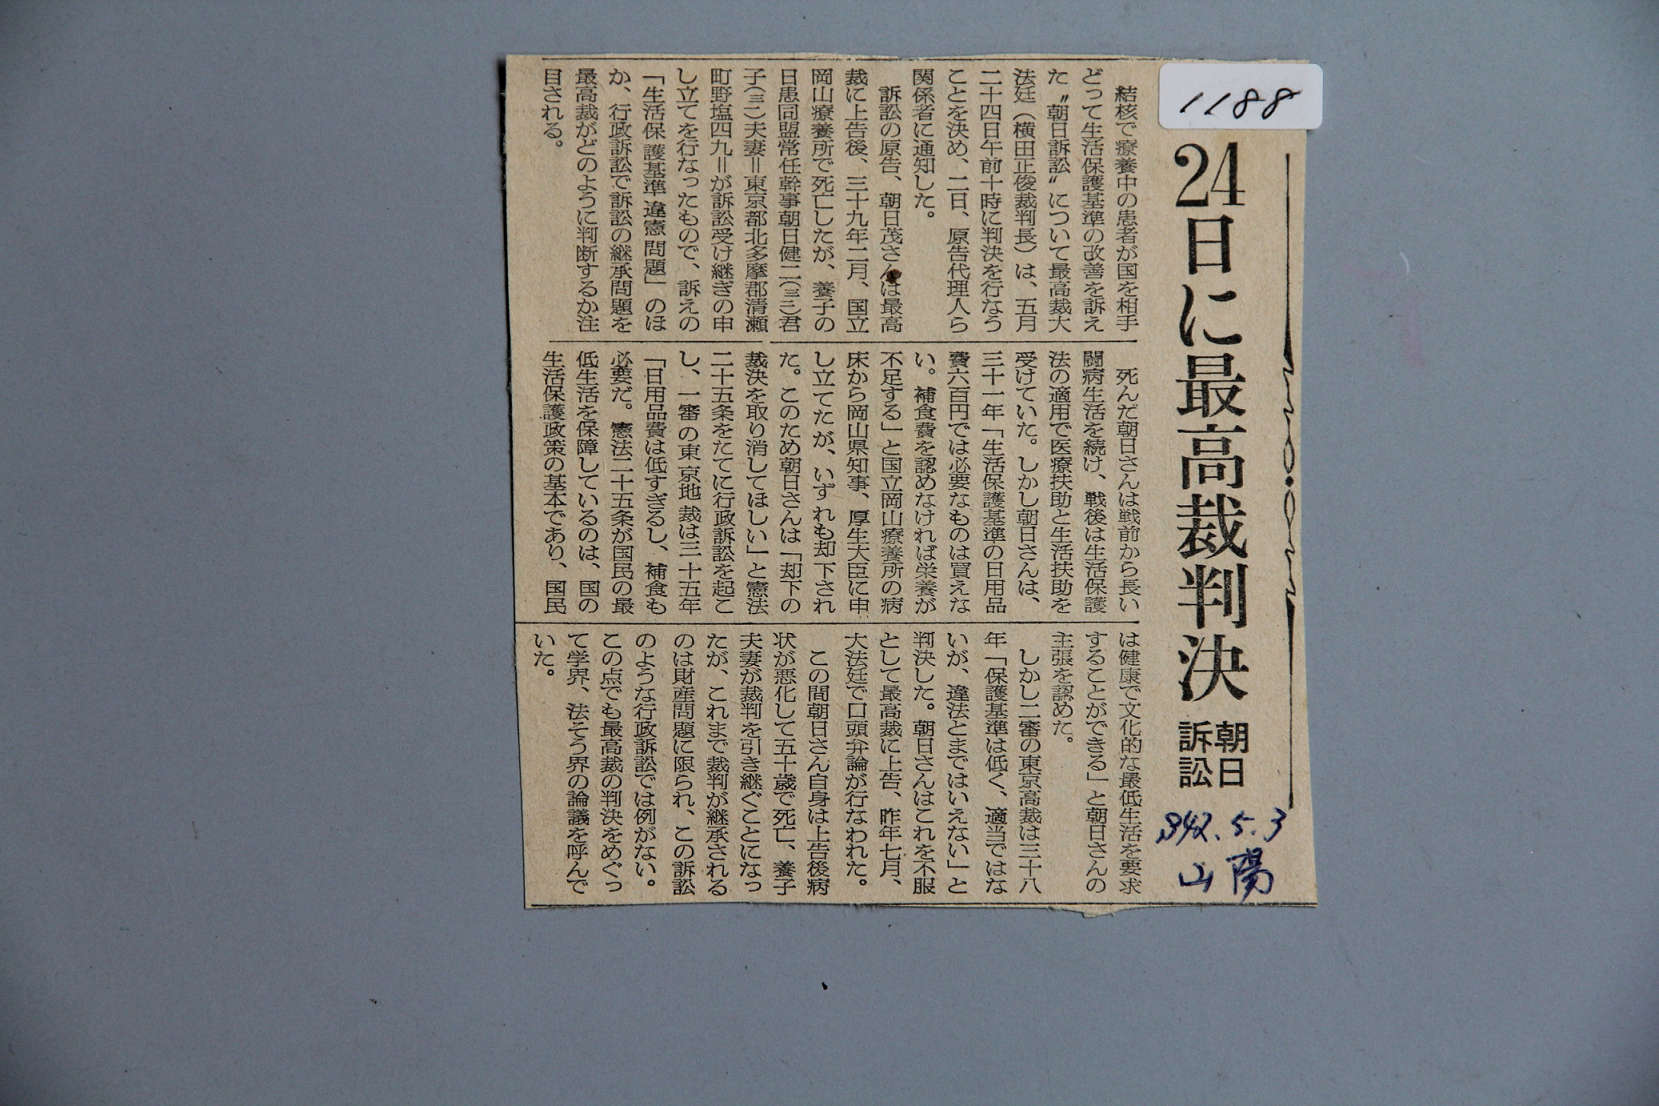 1188
24日に最高裁判決
朝日
訴訟
S42.5.3
山陽
結核で療養中の患者が国を相手
どって生活保護基準の改善を訴え
た〝朝日訴訟〟について最高裁大
法廷（横田正俊裁判長）は、五月
二十四日午前十時に判決を行なう
ことを決め、二日、原告代理人ら
関係者に通知した。
訴訟の原告、朝日茂さんは最高
裁に上告後、三十九年二月、国立
岡山療養所で死亡したが、養子の
日患同盟常任幹事朝日健二(三一)君
子(三一)夫妻＝東京都北多摩郡清瀬
町野塩四九＝が訴訟受け継ぎの申
し立てを行なったもので、訴えの
「生活保護基準違憲問題」のほ
か、行政訴訟で訴訟の継承問題を
最高裁がどのように判断するか注
目される。
死んだ朝日さんは戦前から長い
闘病生活を続け、戦後は生活保護
法の適用で医療扶助と生活扶助を
受けていた。しかし朝日さんは、
三十一年「生活保護基準の日用品
費六百円では必要なものは買えな
い。補食費を認めなければ栄養が
不足する」と国立岡山療養所の病
床から岡山県知事、厚生大臣に申
し立てたが、いずれも却下され
た。このため朝日さんは「却下の
裁決を取り消してほしい」と憲法
二十五条をたてに行政訴訟を起こ
し、一審の東京地裁は三十五年
「日用品費は低すぎるし、補食も
必要だ。憲法二十五条が国民の最
低生活を保障しているのは、国の
生活保護政策の基本であり、国民
は健康で文化的な最低生活を要求
することができる」と朝日さんの
主張を認めた。
しかし二審の東京高裁は三十八
年「保護基準は低く、適当ではな
いが、違法とまではいえない」と
判決した。朝日さんはこれを不服
として最高裁に上告、昨年七月、
大法廷で口頭弁論が行なわれた。
この間朝日さん自身は上告後病
状が悪化して五十歳で死亡、養子
夫妻が裁判を引き継ぐことになっ
たが、これまで裁判が継承される
のは財産問題に限られ、この訴訟
のような行政訴訟では例がない。
この点でも最高裁の判決をめぐっ
て学界、法そう界の論議を呼んで
いた。